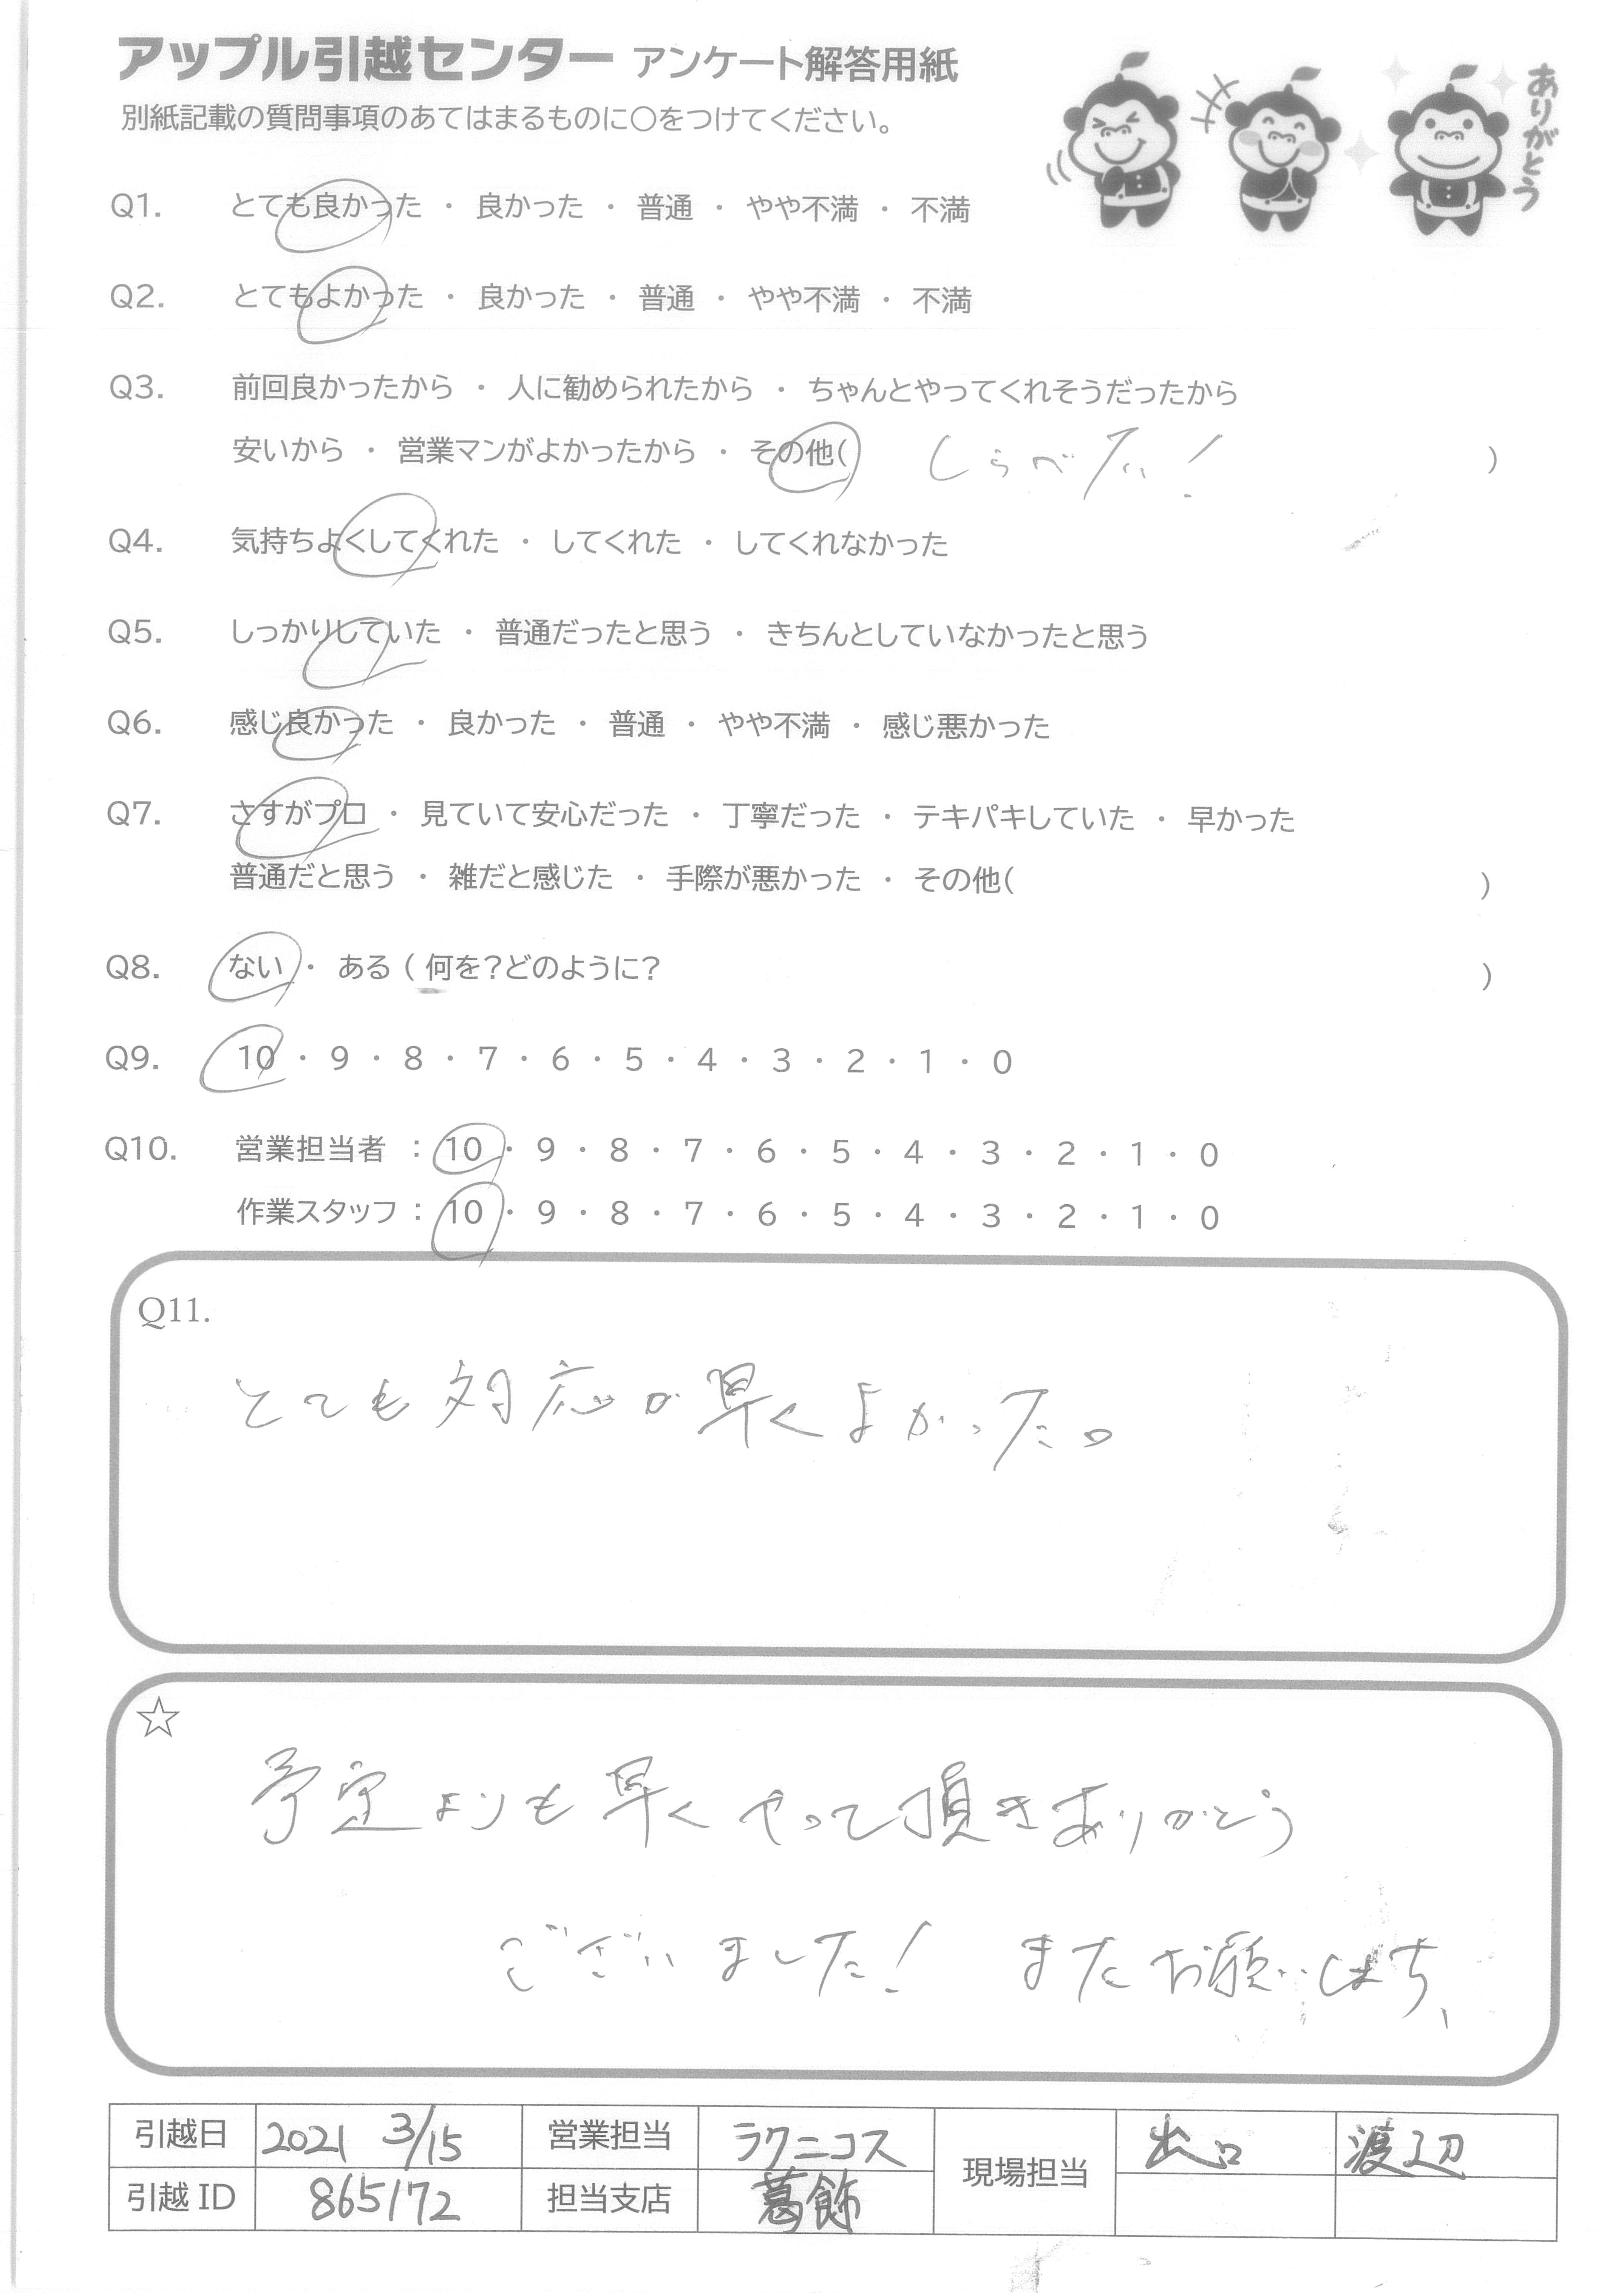 アップル引越センター アンケート解答用紙
別紙記載の質問事項のあてはまるものに〇をつけてください。
ありがとう
Q1. とても良かった ・ 良かった ・ 普通 ・ やや不満 ・ 不満
Q2. とてもよかった ・ 良かった ・ 普通 ・ やや不満 ・ 不満
Q3. 前回良かったから ・ 人に勧められたから ・ ちゃんとやってくれそうだったから
安いから ・ 営業マンがよかったから ・ その他( しらべたい! )
Q4. 気持ちよくしてくれた ・ してくれた ・ してくれなかった
Q5. しっかりしていた ・ 普通だったと思う ・ きちんとしていなかったと思う
Q6. 感じ良かった ・ 良かった ・ 普通 ・ やや不満 ・ 感じ悪かった
Q7. さすがプロ ・ 見ていて安心だった ・ 丁寧だった ・ テキパキしていた ・ 早かった
普通だと思う ・ 雑だと感じた ・ 手際が悪かった ・ その他( )
Q8. ない ・ ある ( 何を?どのように? )
Q9. 10 ・ 9 ・ 8 ・ 7 ・ 6 ・ 5 ・ 4 ・ 3 ・ 2 ・ 1 ・ 0
Q10. 営業担当者 : 10 ・ 9 ・ 8 ・ 7 ・ 6 ・ 5 ・ 4 ・ 3 ・ 2 ・ 1 ・ 0
作業スタッフ : 10 ・ 9 ・ 8 ・ 7 ・ 6 ・ 5 ・ 4 ・ 3 ・ 2 ・ 1 ・ 0
Q11.
とても対応が早くよかった。
☆
予定よりも早くやって頂きありがとう
ございました! またお願いします、
引越日 2021 3/15 営業担当 ラクニコス 現場担当 出口 渡辺
引越ID 865172 担当支店 葛飾